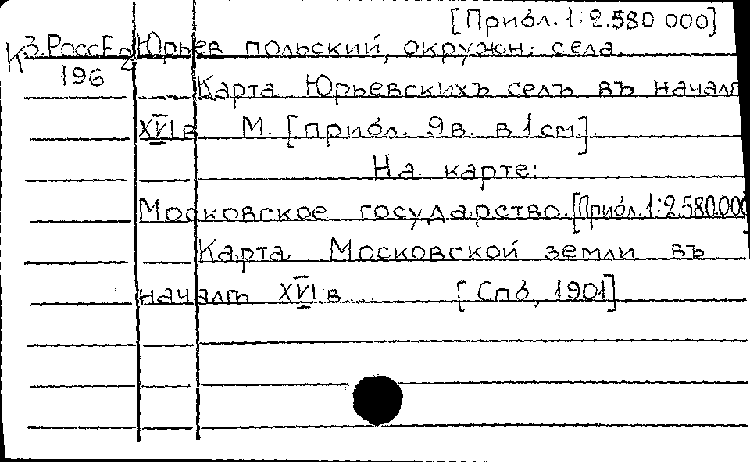 [Прибл. 1:2.580 000]
К 3. РоссЕв Юрьев польский, окружн. села.
196 Карта Юрьевскихъ селъ въ началѣ
XVI в М. [прибл. 9 в. в 1 см].
На карте:
Московское государство. [Прибл. 1:2.580.000]
Карта Московской земли въ
началѣ XVI в. [Спб, 1901]